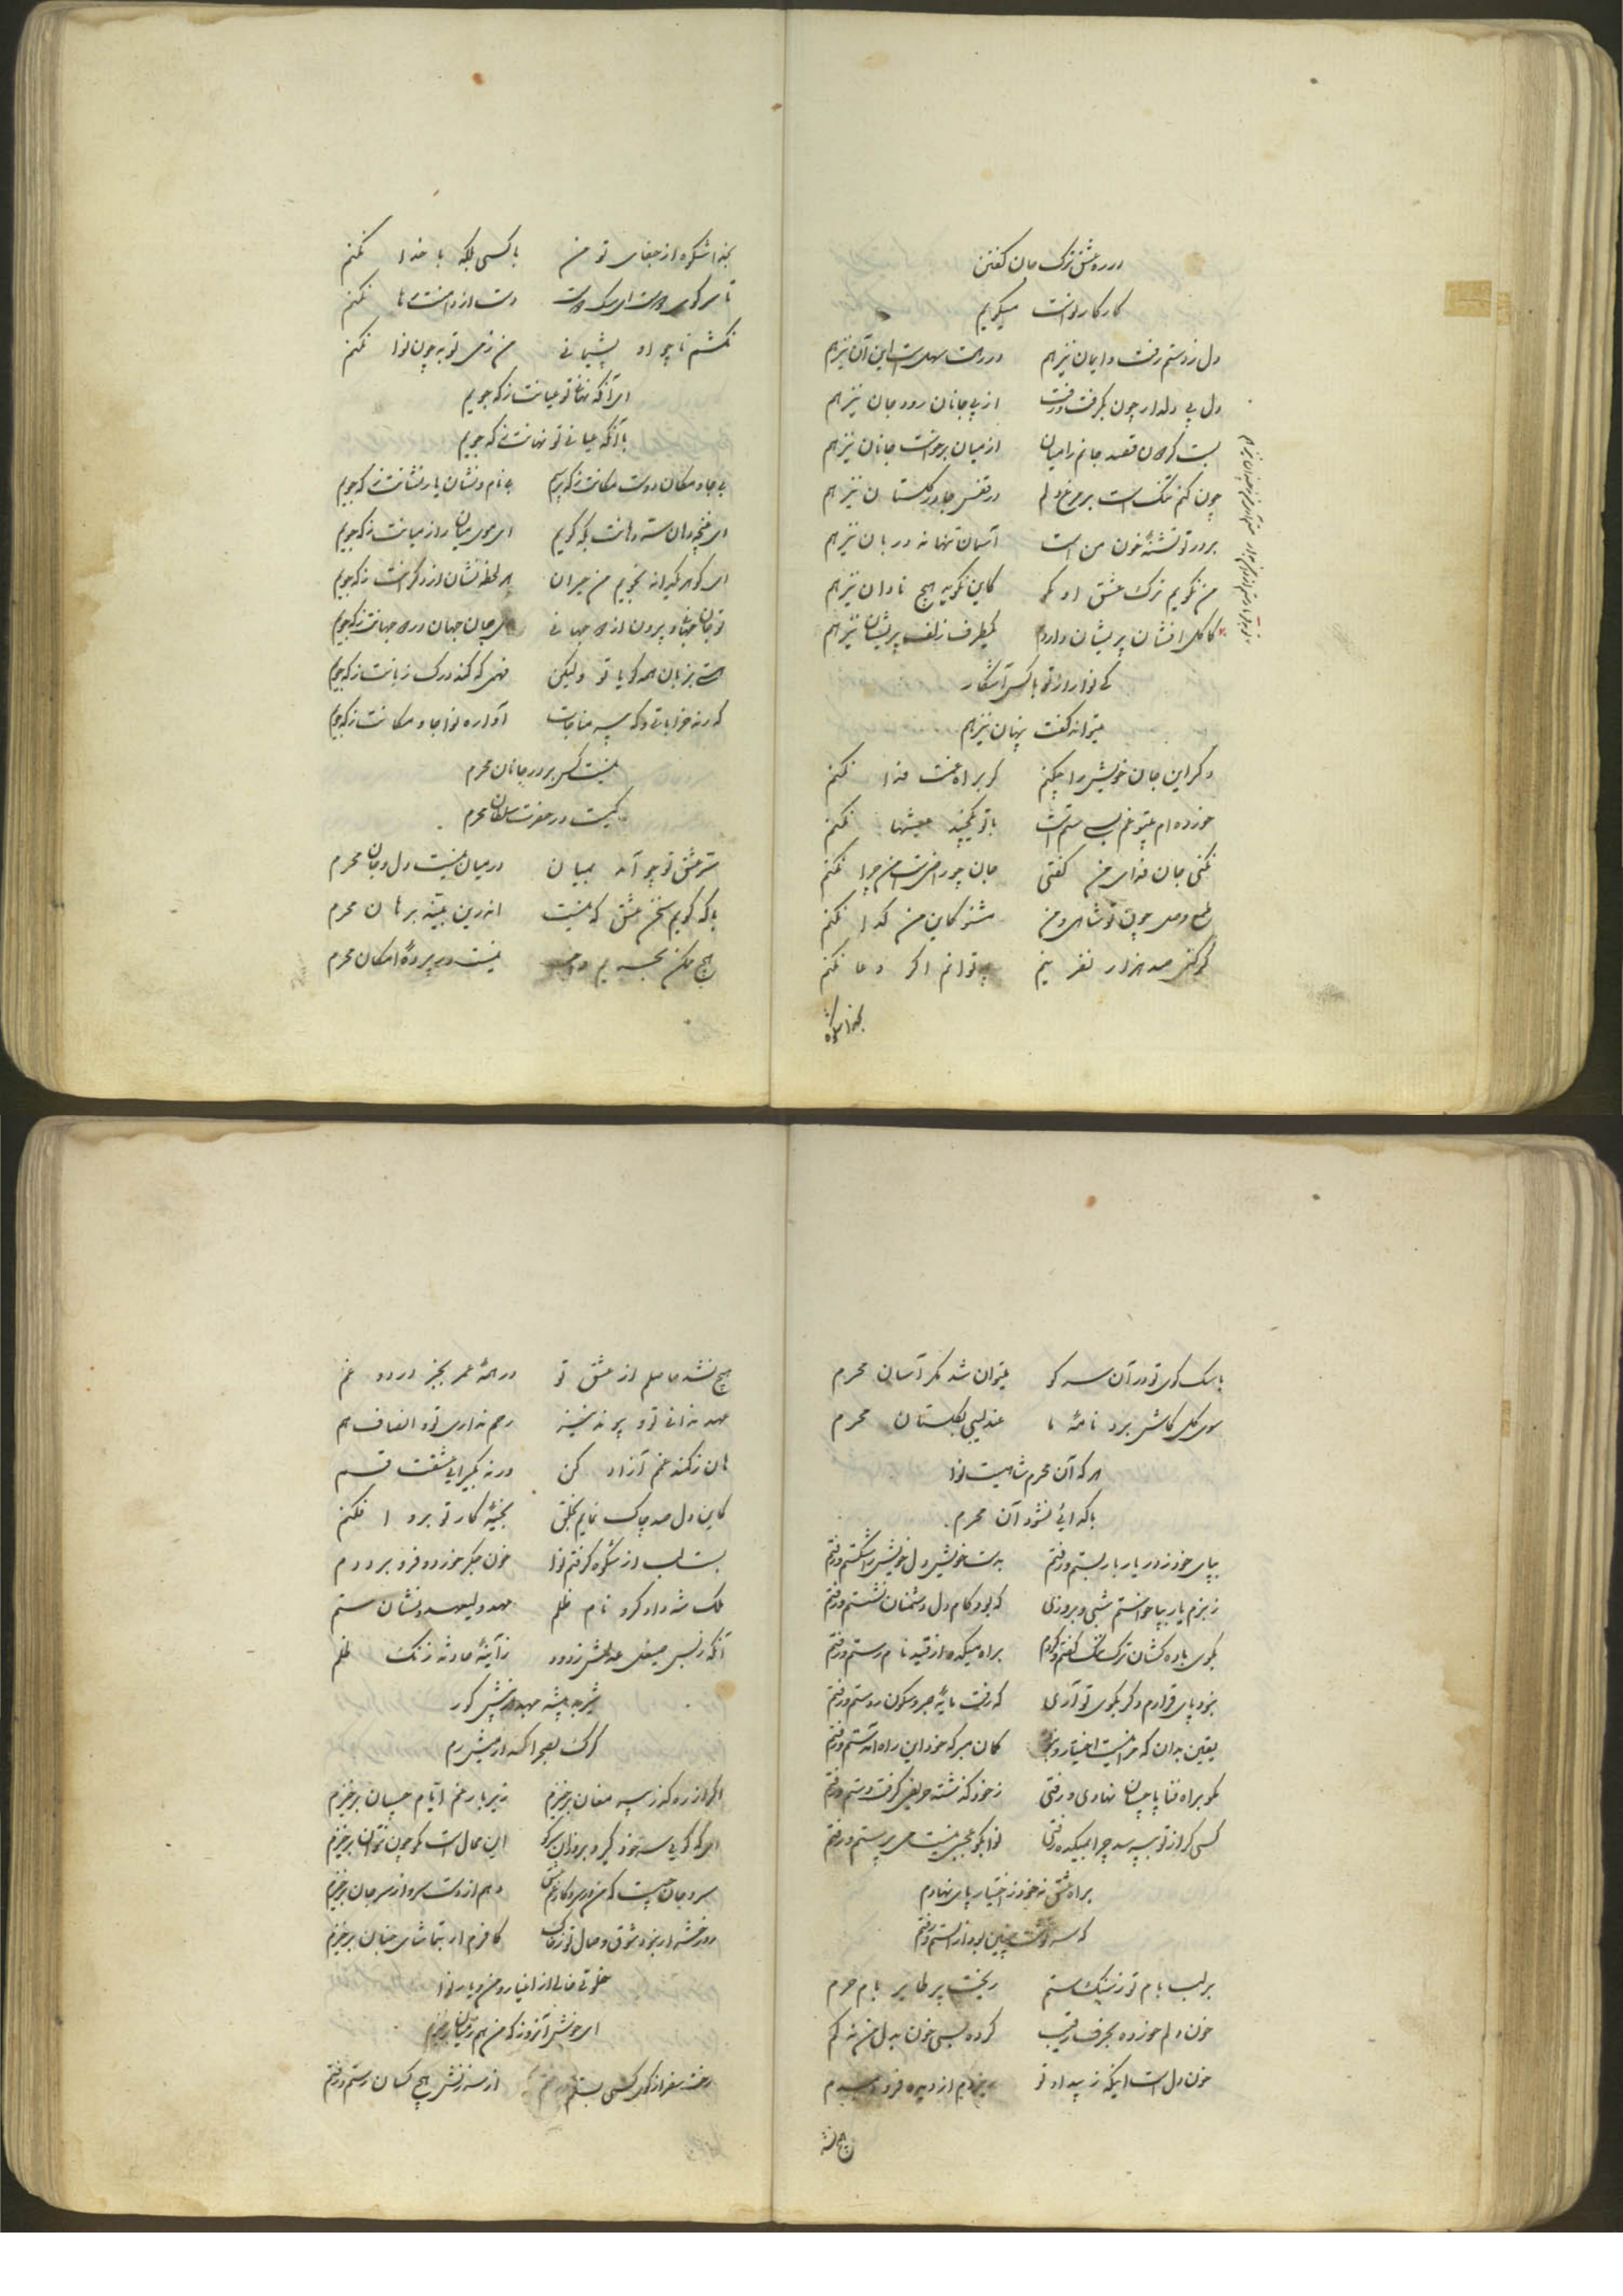 در ره عشق ترک جان گفتن
کار کار نواست میگویم
دل ز دستم رفت و ایمان نیز هم در رهت سهلست این آن نیز هم
دل پی دلدار چون بگرفت و رفت از پی جانان رود جان نیز هم
بست چون قصد جانم را میان از میان برخواست جانان نیز هم
چون کنم تنگ است بر مرغ دلم در قفس جا در گلستان نیز هم
بر در تو تشنهٔ خون من است آسمان تنها نه دربان نیز هم
من نگویم ترک عشق او مگو کاین نگوید هیچ نادان نیز هم
کاکل افشان پریشان دارم یکطرف زلف پریشان نیز هم
کی نوا راز تو با کس آشکار
میتواند گفت پنهان نیز هم
دگر این جان خویش را چکنم گر براه غمت فدا نکنم
خورده‌ام بیتو غم بسی ستم است با تو عیشها نکنم
نکنی جان فدای من گفتی جان چو راضی است من چرا نکنم
طمع وصل چون تو شاهی و من مشنو کاین من گدا نکنم
گر کنی صد هزار نفرینم نتوانم اگر دعا نکنم
بخدا شکوه
بخدا شکوه از جفای تو من با کسی بلکه با خدا نکنم
تا سر کوی دوست دست از دامنت رها نکنم
نکشم تا چو او پشیمانی من ز می توبه چون نوا نکنم
ای آنکه نهانی تو عیانت ز که جویم
با آنکه عیانی تو نهانت ز که جویم
بی جا و مکان دوست مکانت ز که پرسم بی نام و نشان یار نشانت ز که جویم
ای غنچه دهان سر دهانت بکه گویم ای موی میان راز میانت ز که جویم
ای گوهر یکدانه نجویم من حیران هر لحظه نشان از دگرانت ز که جویم
تو جان جهان و برون از دو جهانی ای جان جهان در دو جهانت ز که جویم
هستی بزبان همه گویا تو ولیکن فهمی که کند درک زبانت ز که جویم
گه رند خراباتی و گه پیر مناجات آواره نوا جا و مکانت ز که جویم
نیست کس بر در جانان محرم
کیست در حضرت سلطان محرم
سر عشق تو چو آمد بمیان در میان نیست دل و جان محرم
با که گویم سخن عشق که نیست اندرین بتیه برهان محرم
هیچ ممکن نیست در پردهٔ امکان محرم
با سگ کوی تو در آن سر کو میتوان شد مگر آسان محرم
سوی گل کاش برد نامهٔ ما عندلیبی بگلستان محرم
هر که آن محرم شاهیست نوا
با گدائی نشود آن محرم
بپای خود ز در یار بار بستم و رفتم بدست خویش دل خویش را شکستم و رفتم
ز بزم یار بپا خواستم شبی و بروزی که بود کام دل دشمنان نشستم و رفتم
بکوی باده کشان ترک ننگ گفتم و کردم براه میکده از قید نام رستم و رفتم
نبود پای قرارم دگر بکوی تو آری که رفت مایهٔ صبر و سکون ز دستم و رفتم
یقین بدان که مرا نیست اختیار و گمان مبر که خود این راه آمدستم و رفتم
مگو براه فنا پا چسان نهادی و رفتی ز خود گذشته حریفی گرفت دستم و رفتم
کسی گر از تو بپرسد چرا بمیکده رفتی نوا بگو عجبی نیست می پرستم و رفتم
براه عشق نه خود ز اختیار پای نهادم
که سرنوشت چنین بود از الستم و رفتم
بر لب بام تو ز سنگ ستم ریخت پر طایر بام حرم
خون دلم خورده بحرف رقیب کرده بسی خون بدل من نه کم
خون دل است اینکه ز بیداد تو ریزدم از دیده فرو دمبدم
هیچ نشد
هیچ نشد حاصلم از عشق تو در همهٔ عمر بجز درد و غم
عهد ندانی تو و پیوند نیز رحم نداری تو و انصاف هم
هان ز کمند غم آزاد کن ورنه بگیرائی عشقت قسم
کاین دل صد چاک نمایم بخلق بخیهٔ کار تو برو افکنم
بست لب از شکوه گرفتم نوا خون جگر خورد و فرو برد دم
ملک شه داد گرد نام ظلم عهد ولیعهد و نشان ستم
آنکه ز بس صیقل عدلش زدود ز آینهٔ حادثه زنگ ظلم
شیر به بیشه عهدش گور
گرگ بصحرا کند از میش رم
اگر از در که ز پیر مغان برخیزم زیر بار غم ایام چسان برخیزم
ای که گوئی سر خود گیر و برو زان سر کو این محال است مگو چون نتوان برخیزم
سر و جان چیست که من در سر و کار غمش دهم از دست سر و از سر جان برخیزم
روز حشر ار نبود شوق وصال تو ز خاک کافرم ار بتماشای جنان برخیزم
خلوتی خالی از اغیار و من و یار نوا
ای خوش آنروز که من هم ز میان برخیزم
رخت سفر از کوی کسی بستم و رفتم از سرزنش هیچ کسان رستم و رفتم